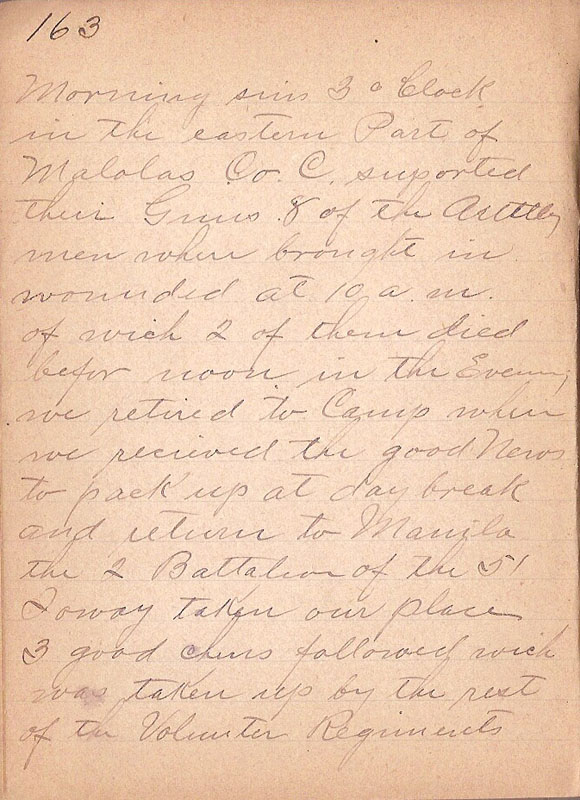 163
Morning sins 3 o Clock
in the eastern Part of
Malolas Co. C. suported
their Guns 8 of the Artitley
men when brought in
wounded at 10 a. m.
of wich 2 of them died
befor noon in the Evening
we retired to Camp when
we recieved the good News
to pack up at day break
and return to Manila
the 2 Battalion of the 51
Ioway taken our place
3 good chers followed wich
was taken up by the rest
of the Volunter Regiments